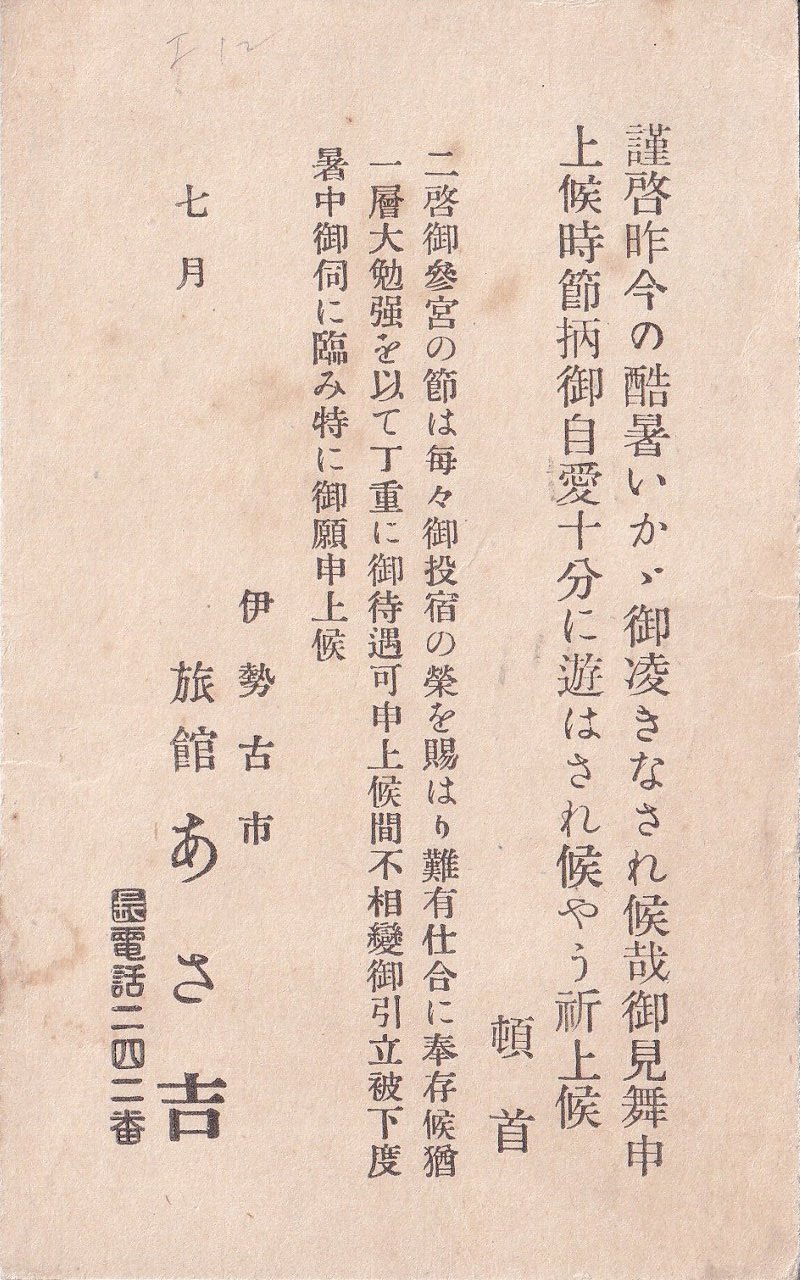 謹啓昨今の酷暑いかゞ御凌きなされ候哉御見舞申
上候時節柄御自愛十分に遊はされ候やう祈上候
頓首
二啓御參宮の節は毎々御投宿の榮を賜はり難有仕合に奉存候猶
一層大勉强を以て丁重に御待遇可申上候間不相變御引立被下度
暑中御伺に臨み特に御願申上候
七月
伊勢古市
旅館あさ吉
電話二四二番